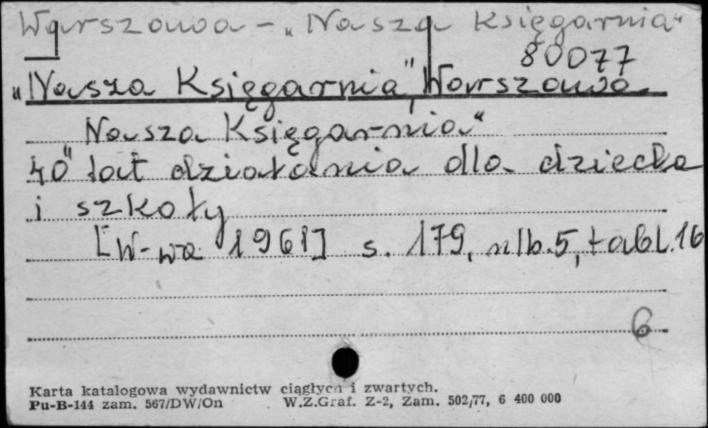 Warszawa - „Nasza Księgarnia"
80077
„Nasza Księgarnia", Warszawa
„Nasza Księgarnia"
40 lat działania dla dziecka
i szkoły
[W-wa 1961] s. 179, nlb. 5, tabl. 16
6
Karta katalogowa wydawnictw ciągłych i zwartych.
Pu-B-144 zam. 567/DW/On W.Z.Graf. Z-2, Zam. 502/77, 6 400 000